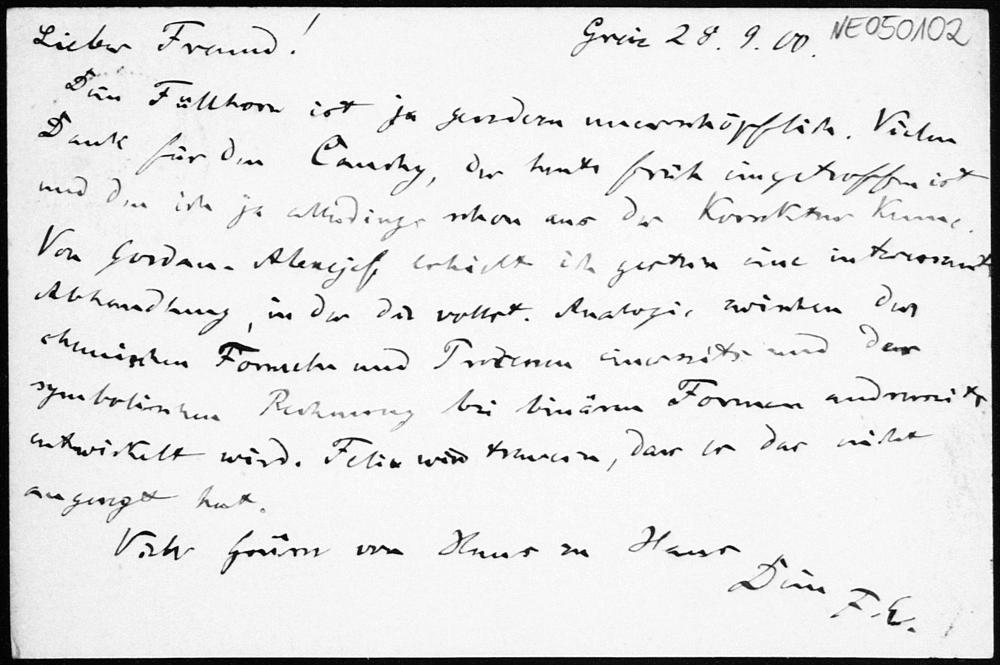 Lieber Freund!
Greiz 28. 9. 00.
NE050102
Dein Füllhorn ist ja geradezu unerschöpflich. Vielen
Dank für den Cauchy, der heute früh eingetroffen ist
und den ich ja allerdings schon aus der Korrektur kenne.
Von Gordan-Alexejeff erhielt ich gestern eine interessante
Abhandlung, in der die vollst. Analogie zwischen den
chemischen Formeln und Prozessen einerseits und der
symbolischen Rechnung bei binären Formen andrerseits
entwickelt wird. Felix wird trauern, dass er das nicht
angeregt hat.
Viele Grüsse von Haus zu Haus
Dein
F. E.